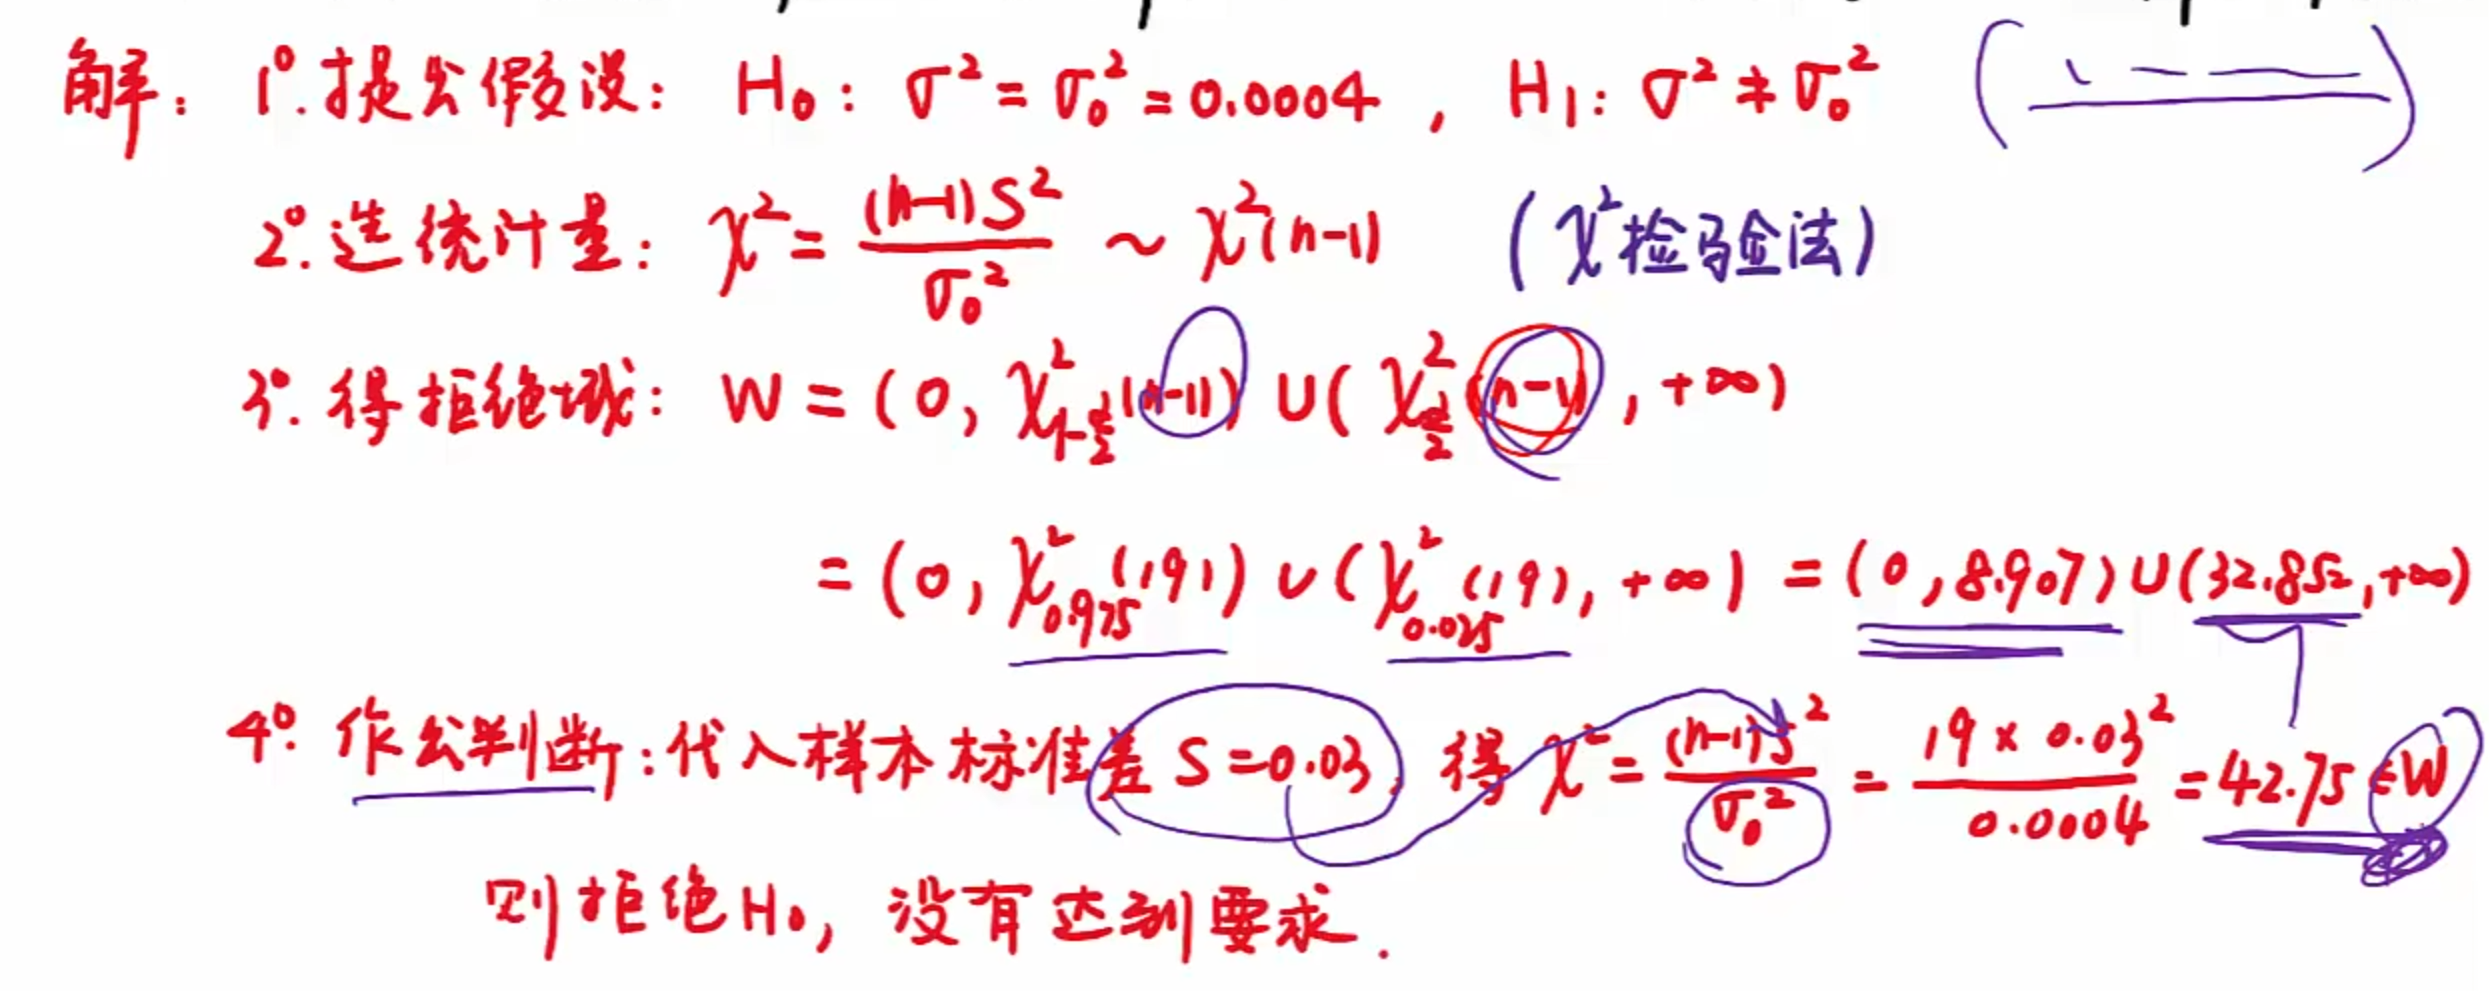 解：1°.提出假设：H₀：σ²=σ₀²=0.0004，H₁：σ²≠σ₀²
2°.选统计量：χ²=(n-1)S²/σ₀² ~ χ²(n-1) (χ²检验法)
3°.得拒绝域：W=(0, χ²_{1-α/2}(n-1)) U (χ²_{α/2}(n-1), +∞)
=(0, χ²_{0.975}(19)) ∪ (χ²_{0.025}(19), +∞) = (0, 8.907) U (32.852, +∞)
4°.作出判断：代入样本标准差 S=0.03, 得 χ²=(n-1)S²/σ₀²=19×0.03²/0.0004=42.75∈W
则拒绝H₀, 没有达到要求.